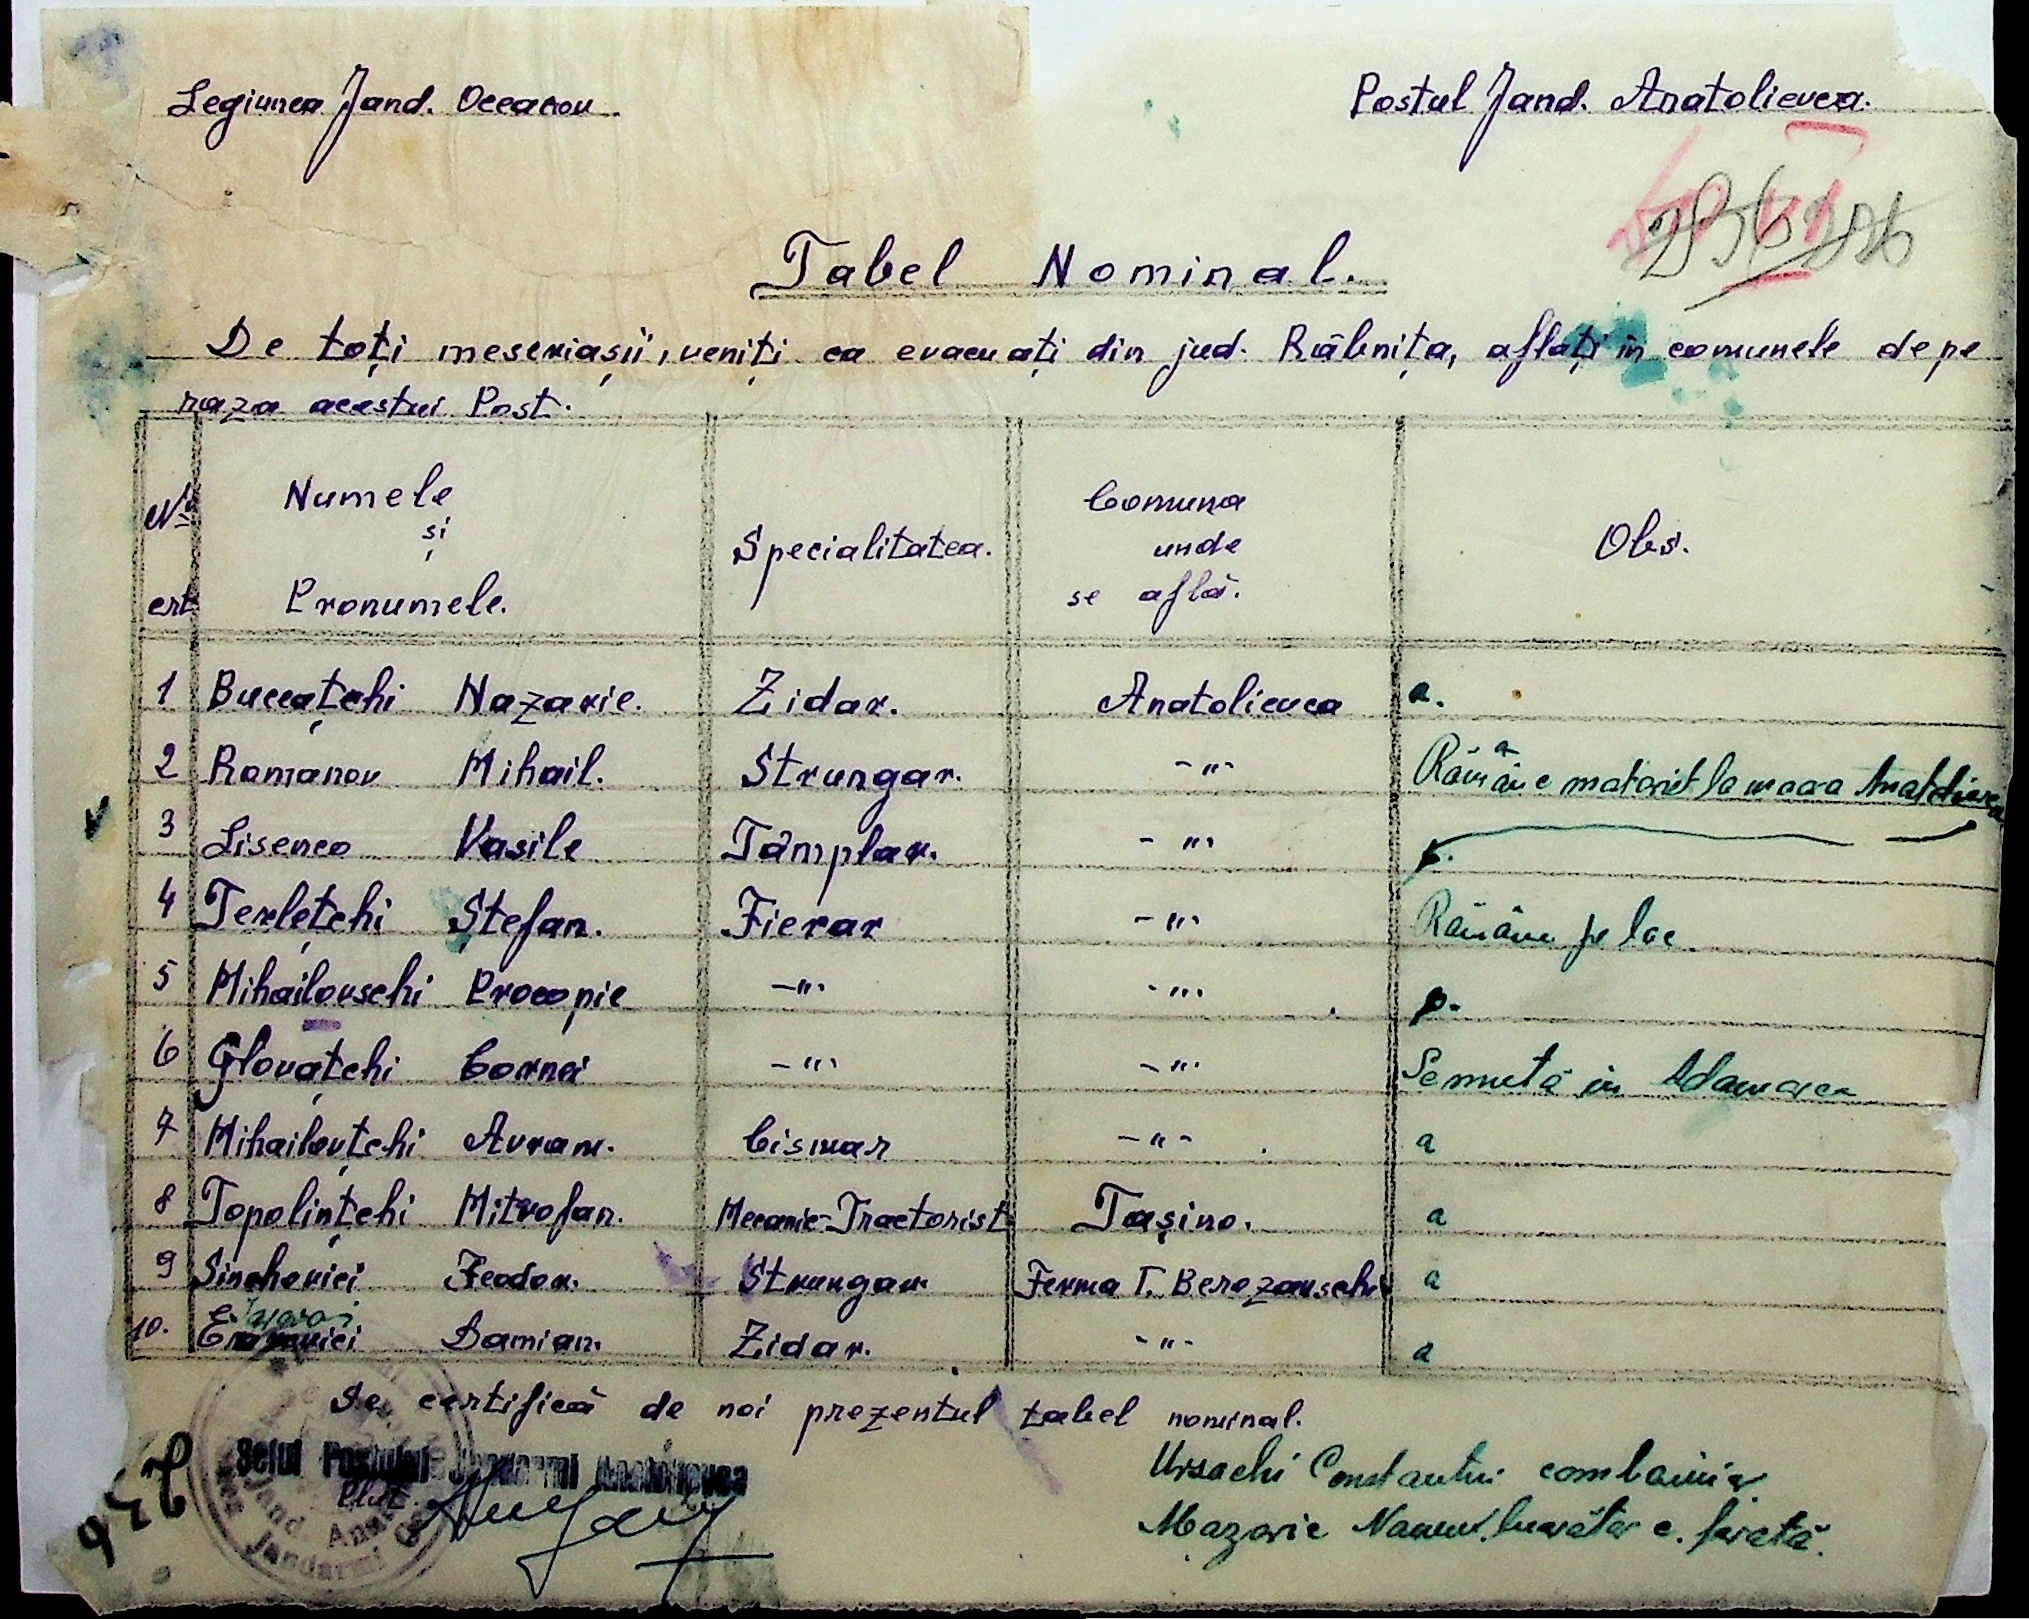 Legiunea Jand. Oceacov. Postul Jand. Anatolievca.
Tabel Nominal.
De toți meseriașii, veniți ca evacuați din jud. Râbnița, aflați în comunele de pe
raza acestui Post.
No crt Numele și Pronumele. Specialitatea. Comuna unde se află. Obs.
1 Buccațchi Nazarie. Zidar. Anatolievca a.
2 Romanov Mihail. Strungar. -"- Rămâne motorist la moara Anatolievca
3 Lisenco Vasile Tâmplar. -"- p.
4 Terlețchi Ștefan. Fierar -"- Rămâne pe loc
5 Mihailovschi Procopie -"- -"- p.
6 Glovațchi Cornei -"- -"- Se mută în Adamovca
7 Mihailovțchi Avram. Cismar -"- a
8 Topolințchi Mitrofan. Mecanic-Tractorist Tașino. a
9 Sinchevici Feodor. Strungar Ferma T. Berezovschi a
10. Damian. Zidar. -"- a
Se certifică de noi prezentul tabel nominal.
Șeful Postului Jandarmi Anatolievca
Plut.
Ursachi Constantin combainier
Mazarie Naum, lucrător c. ferată.